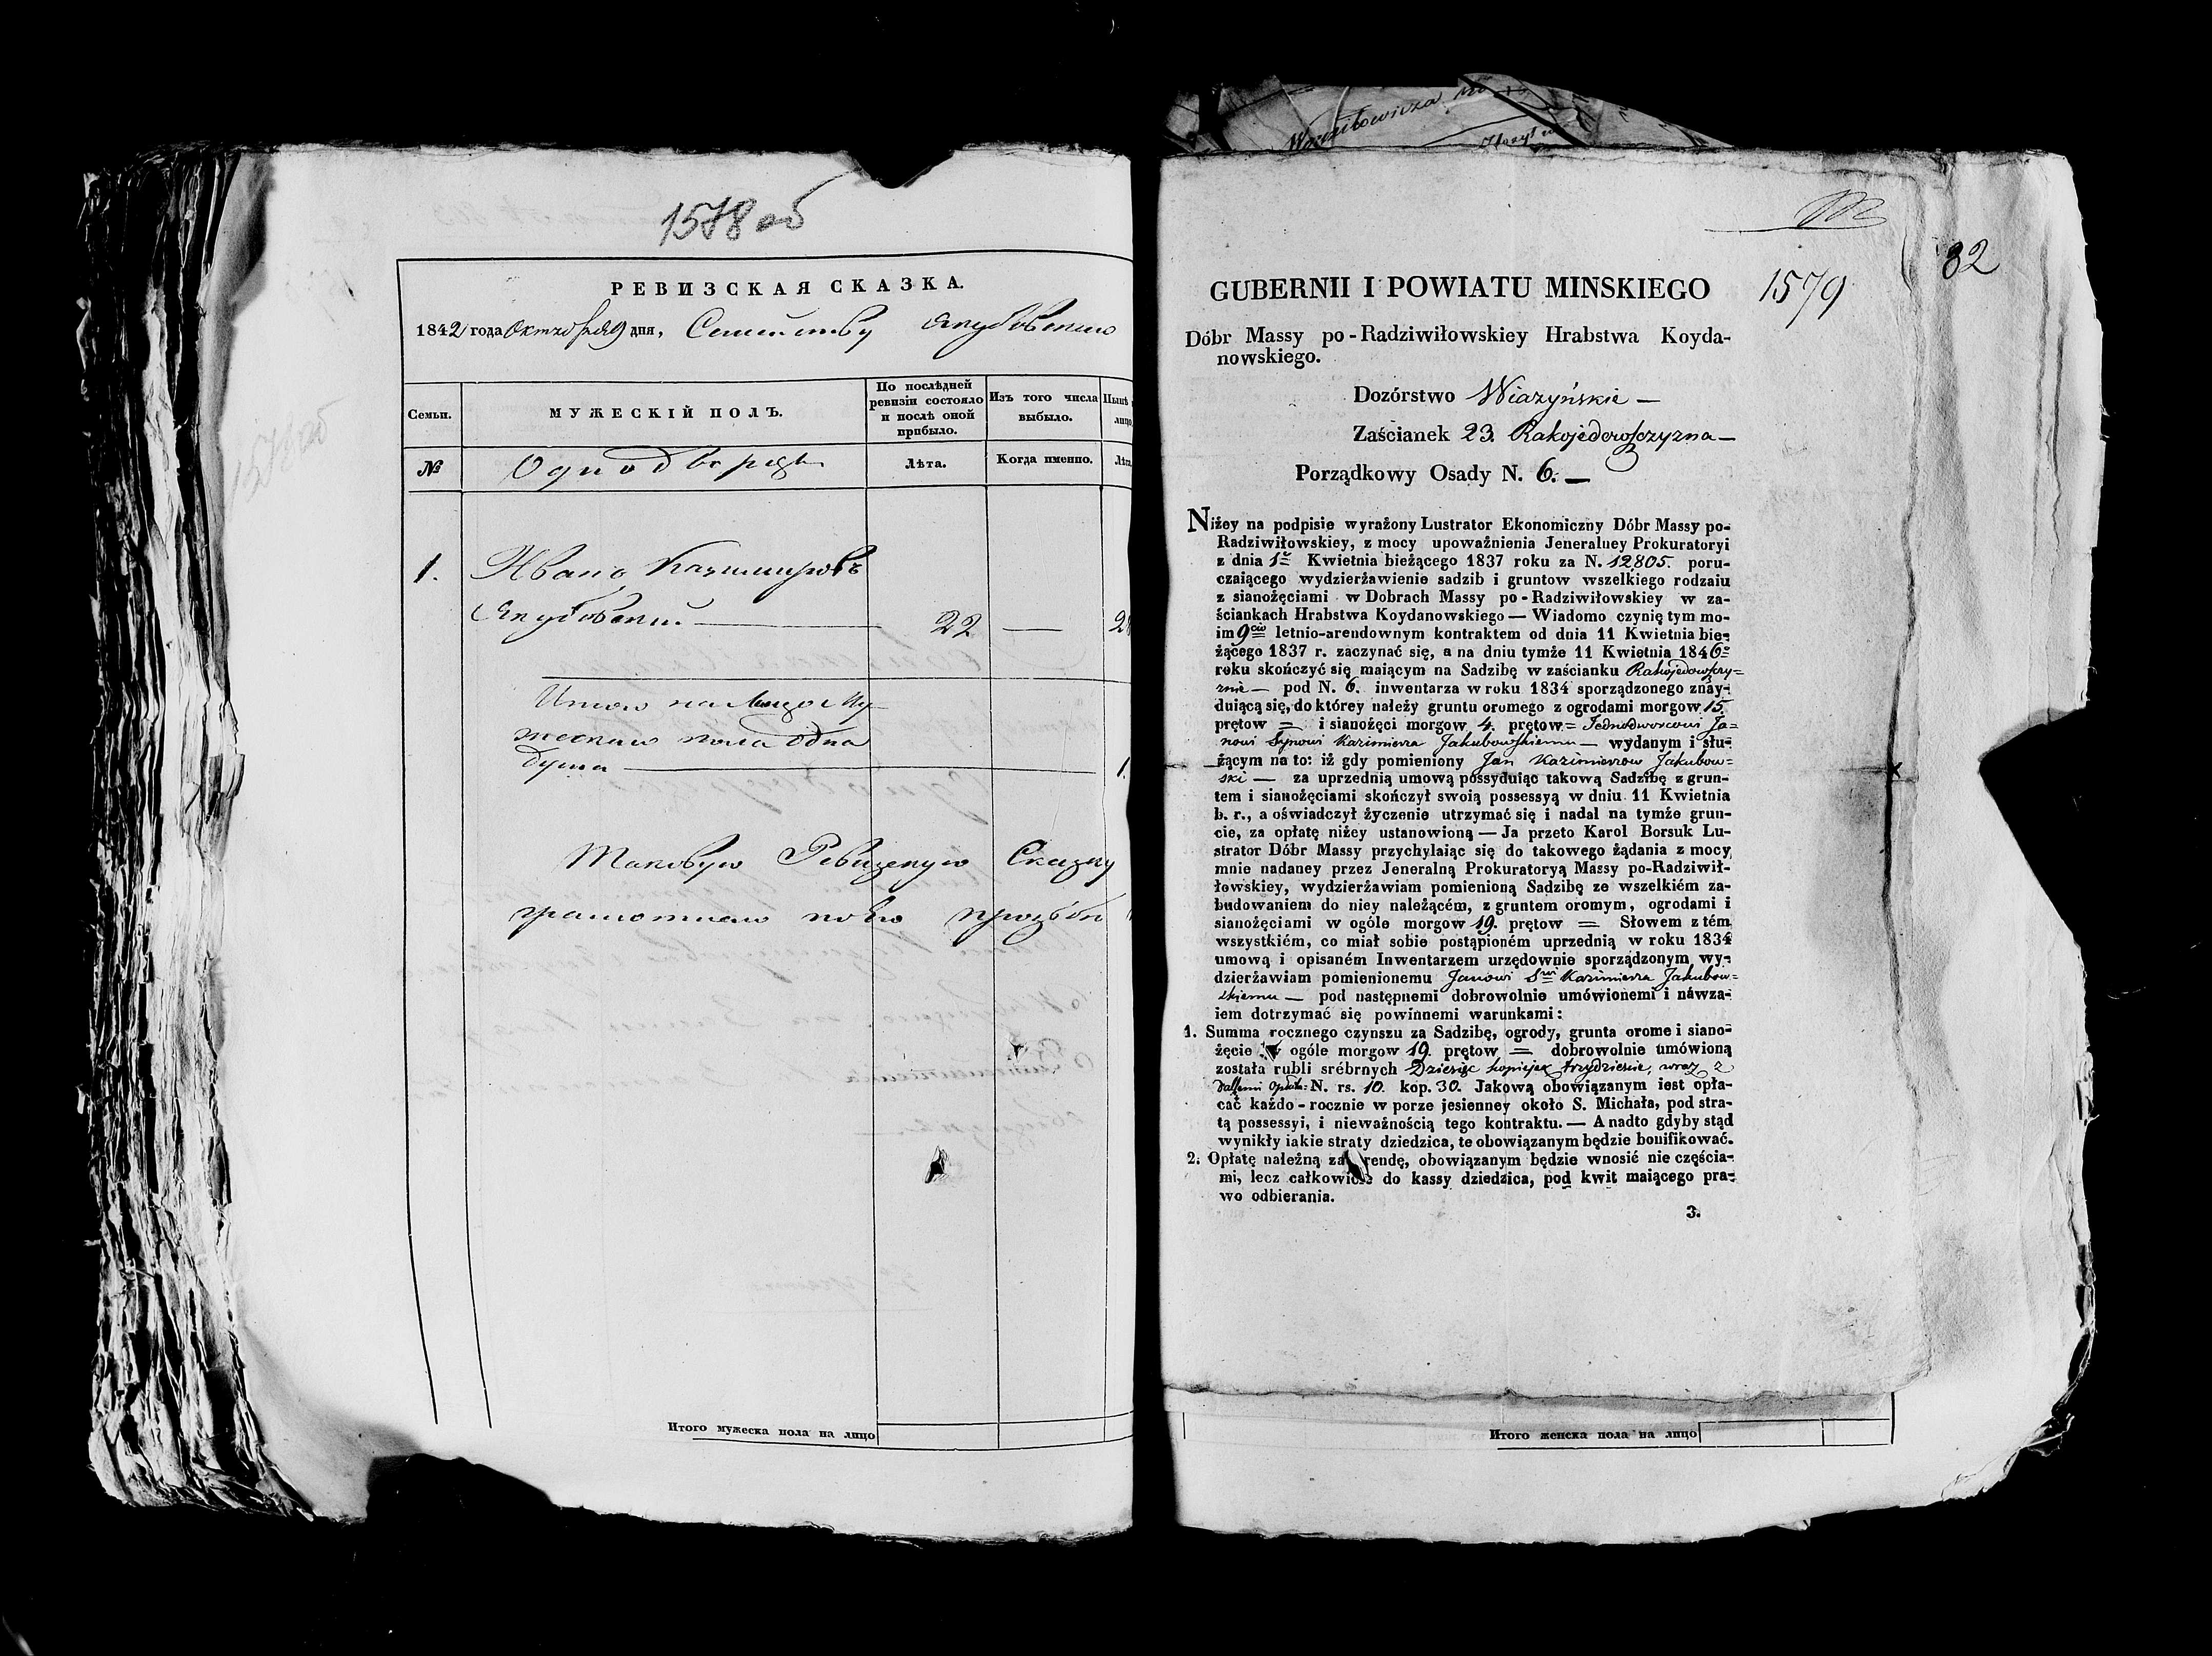 1578 об
РЕВИЗСКАЯ СКАЗКА.
1842 года Октября 9 дня, Семейству Якубовского
Семьи.
МУЖЕСКІЙ ПОЛЪ.
По послѣдней ревизіи состояло и послѣ оной прибыло.
Изъ того числа выбыло.
Нынѣ
лицо
№
Однодворцы
Лѣта.
Когда именно.
Лѣта
1. Иванъ Казимировъ
Якубовский — 22 —
Итого на лицо му-
жескаго пола одна
душа — 1.
Таковую Ревизскую Сказку
грамотного по его прозьбы
Итого мужеска пола на лицо
Wozyt
82
1579
GUBERNII I POWIATU MINSKIEGO
Dóbr Massy po-Radziwiłowskiey Hrabstwa Koyda-
nowskiego.
Dozórstwo Wiazyńskie —
Zaścianek 23. Rakojedowszczyzna —
Porządkowy Osady N. 6. —
Niżey na podpisie wyrażony Lustrator Ekonomiczny Dóbr Massy po-
Radziwiłowskiey, z mocy upoważnienia Jeneralney Prokuratoryi
z dnia 1º Kwietnia bieżącego 1837 roku za N. 12805. poru-
czaiącego wydzierżawienie sadzib i gruntow wszelkiego rodzaiu
z sianożęciami w Dobrach Massy po-Radziwiłowskiey w za-
ściankach Hrabstwa Koydanowskiego — Wiadomo czynię tym mo-
im 9cio letnio-arendownym kontraktem od dnia 11 Kwietnia bie-
żącego 1837 r. zaczynać się, a na dniu tymże 11 Kwietnia 1846º
roku skończyć się maiącym na Sadzibę w zaścianku Rakojedowszczy-
znie — pod N. 6. inwentarza w roku 1834 sporządzonego znay-
duiącą się, do którey należy gruntu oromego z ogrodami morgow 15.
prętow = i sianożęci morgow 4. prętow = Jednodworcowi Ja=
nowi Synowi Kazimierza Jakubowskiemu — wydanym i słu-
żącym na to: iż gdy pomieniony Jan Kazimierzow Jakubow=
ski — za uprzednią umową possyduiąc takową Sadzibę z grun-
tem i sianożęciami skończył swoią possessyą w dniu 11 Kwietnia
b. r., a oświadczył życzenie utrzymać się i nadal na tymże grun-
cie, za opłatę niżey ustanowioną — Ja przeto Karol Borsuk Lu-
strator Dóbr Massy przychylaiąc się do takowego żądania z mocy
mnie nadaney przez Jeneralną Prokuratoryą Massy po-Radziwił-
łowskiey, wydzierżawiam pomienioną Sadzibę ze wszelkiém za-
budowaniem do niey należącém, z gruntem oromym, ogrodami i
sianożęciami w ogóle morgow 19. prętow = Słowem z tém
wszystkiém, co miał sobie postąpioném uprzednią w roku 1834
umową i opisaném Inwentarzem urzędownie sporządzonym wy-
dzierżawiam pomienionemu Janowi Swi Kazimierza Jakubow=
skiemu — pod następnemi dobrowolnie umówionemi i náwza-
iem dotrzymać się powinnemi warunkami:
1. Summa rocznego czynszu za Sadzibę, ogrody, grunta orome i siano-
żęcie w ogóle morgow 19. prętow = dobrowolnie umówioną
została rubli srébrnych Dziesięc kopiejek trzydziescie, wraz z
N. rs. 10. kop. 30. Jakową obowiązanym iest opła-
cać każdo-rocznie w porze jesienney około S. Michała, pod stra-
tą possessyi, i nieważnością tego kontraktu. — A nadto gdyby stąd
wynikły iakie straty dziedzica, te obowiązanym będzie bonifikować.
2. Opłatę należną za arendę, obowiązanym będzie wnosić nie częścia-
mi, lecz całkowicie do kassy dziedzica, pod kwit maiącego pra-
wo odbierania.
3.
Итого женска пола на лицо